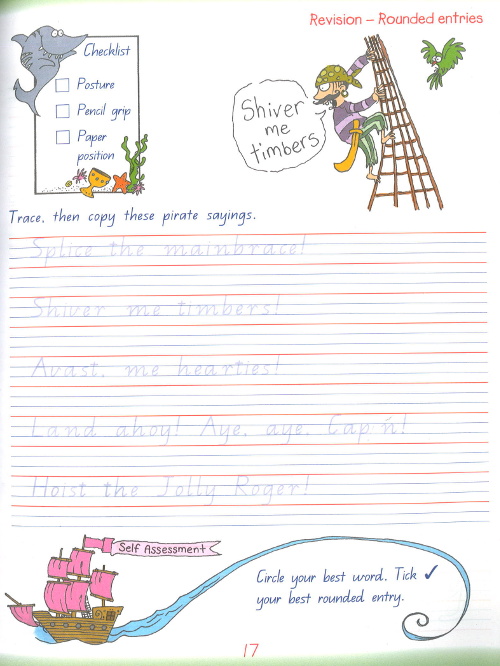 Revision – Rounded entries
Checklist
Posture
Pencil grip
Paper
position
Shiver
me
timbers
Trace, then copy these pirate sayings.
Splice the mainbrace!
Shiver me timbers!
Avast, me hearties!
Land ahoy! Aye, aye, Cap'n!
Hoist the Jolly Roger!
Self Assessment
Circle your best word. Tick ✓
your best rounded entry.
17